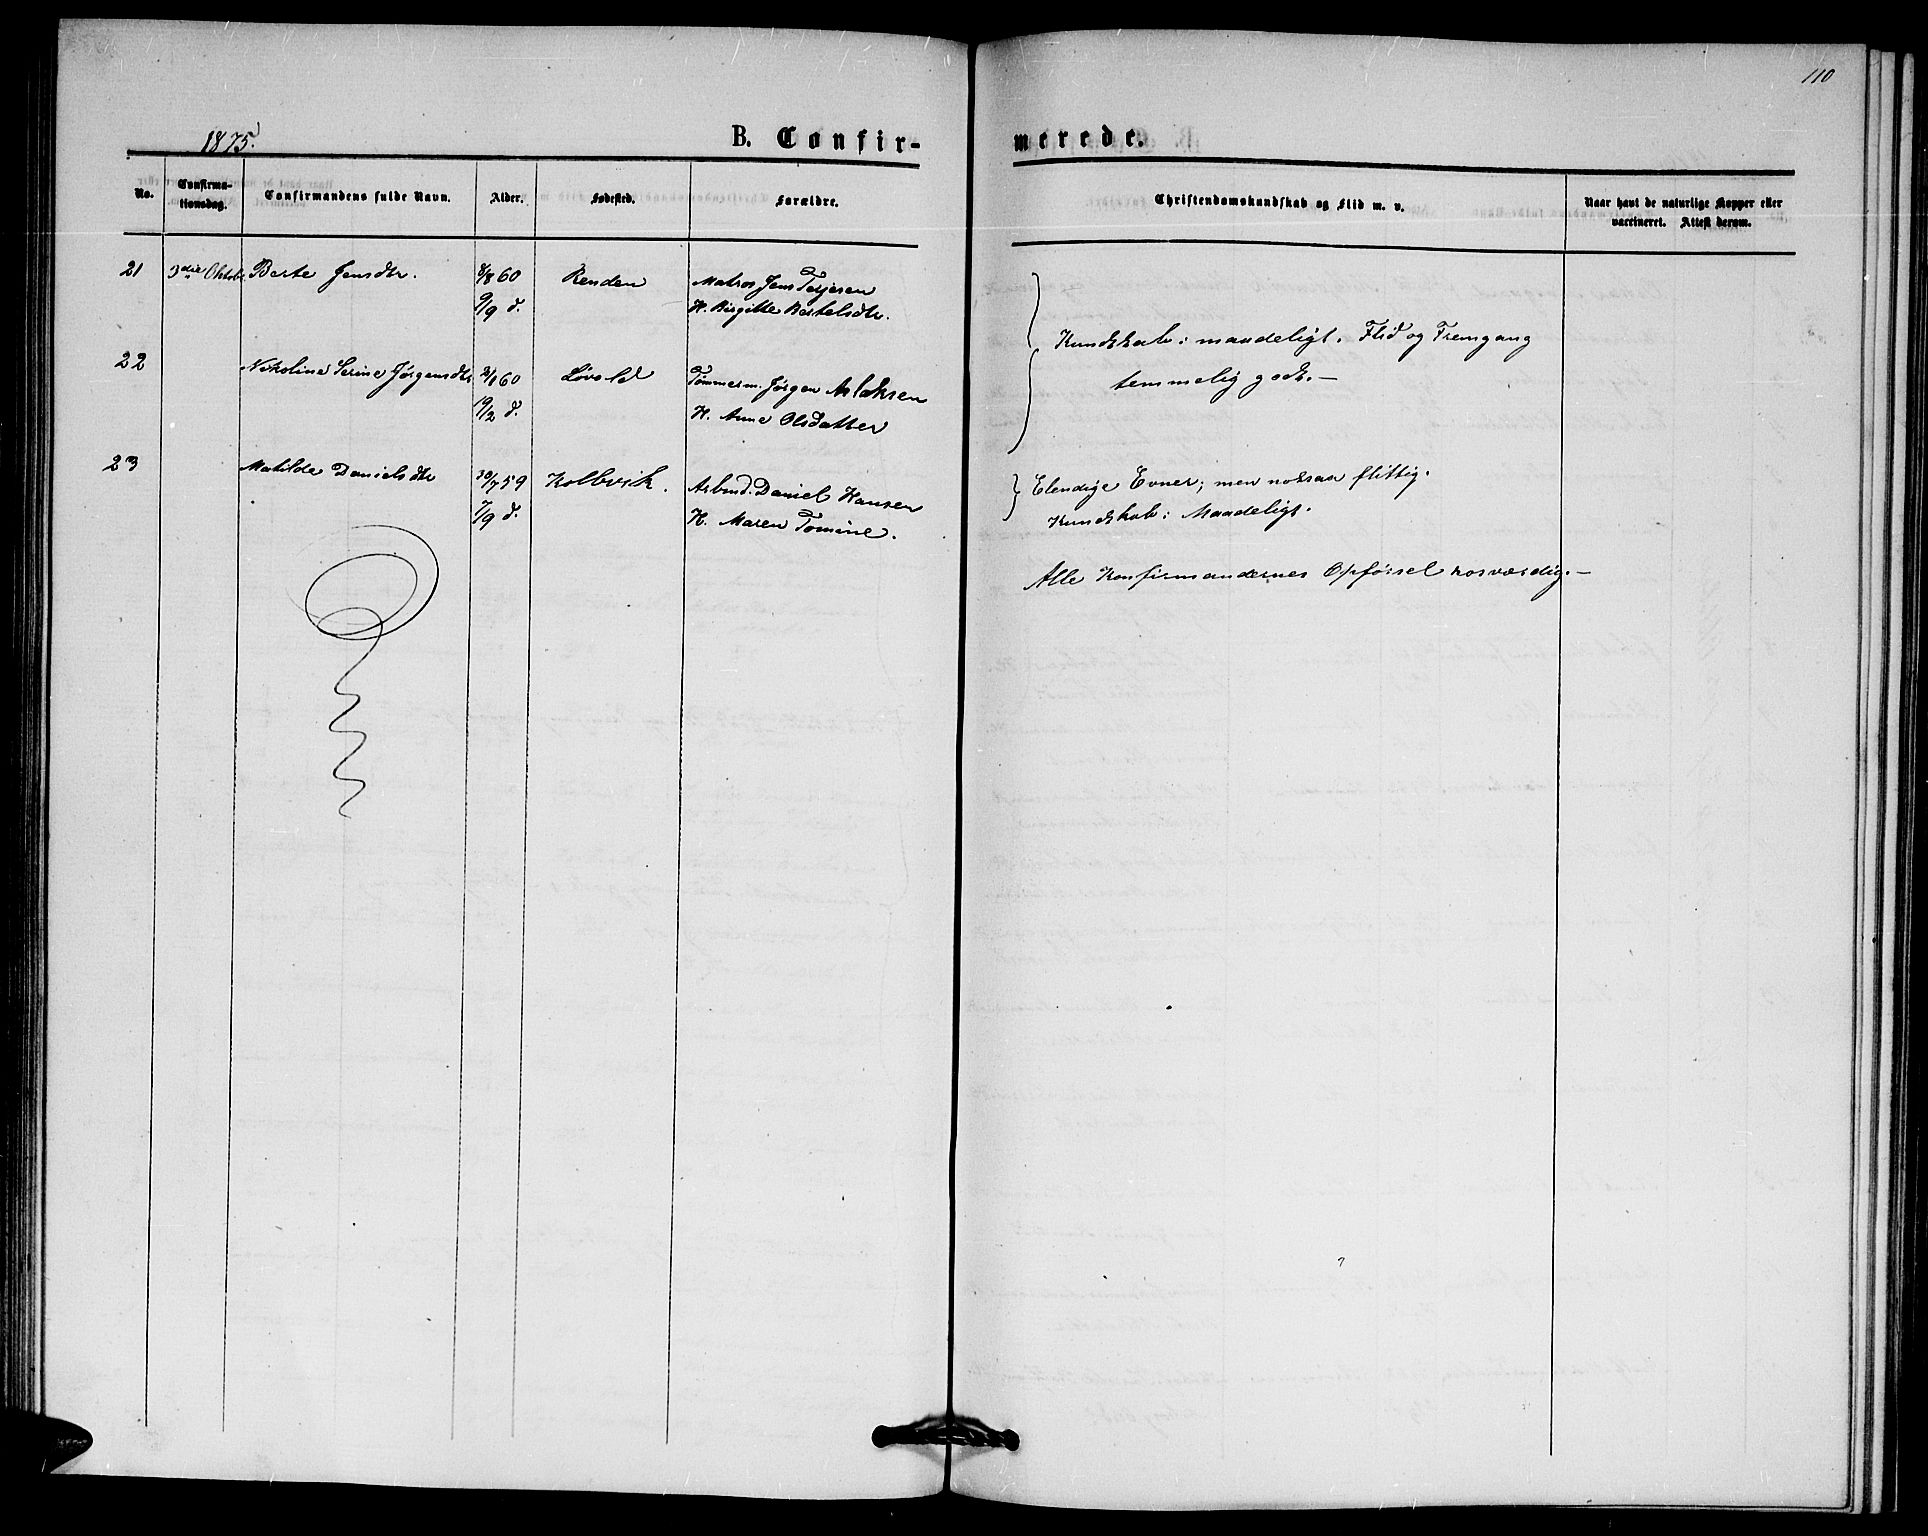 110
1875.
B. Confirmerede.
No.
Confirma-
tionsdag.
Confirmandens fulde Navn.
Alder.
Fødested.
Forældre.
Christendomskundskab og Flid m. v.
Naar havt de naturlige Kopper eller
vaccineret. Attest derom.
21 3die Oktob. Berte Jensdtr. 8/8 60 Renden Matros Jens Terjesen
9/9 d. H. Birgitte Bertelsdtr.
Kundskab: maadeligt. Flid og Fremgang
temmelig godt.—
22 Nikoline Serine Jørgensdtr 2/1 60 Løvold Tømmerm. Jørgen Aslaksen
19/2 d. H. Anne Olsdatter
23 Matilde Danielsdtr 30/7 59 Kolbvik. Arbmd. Daniel Hansen
7/9 d. H. Maren Tomine.
Elendige Evner; men noksaa flittig.
Kundskab: Maadeligt.
Alle Konfirmandernes Opførsel rosværdig.—